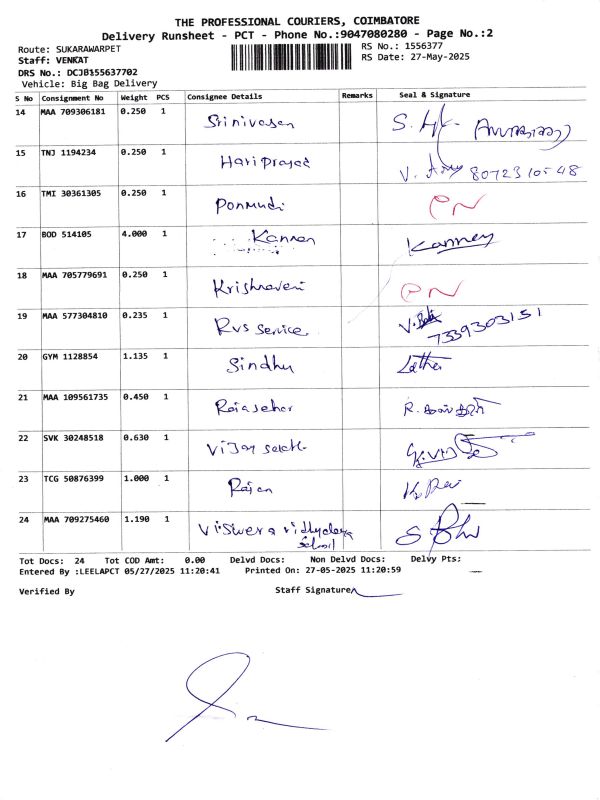 THE PROFESSIONAL COURIERS, COIMBATORE
Delivery Runsheet - PCT - Phone No.:9047080280 - Page No.:2
Route: SUKARAWARPET RS No.: 1556377
Staff: VENKAT RS Date: 27-May-2025
DRS No.: DCJB155637702
Vehicle: Big Bag Delivery
S No Consignment No Weight PCS Consignee Details Remarks Seal & Signature
14 MAA 709306181 0.250 1 Srinivasan
15 TNJ 1194234 0.250 1 Hariprasad 8072310548
16 TMI 30361305 0.250 1 Ponmudi PN
17 BOD 514105 4.000 1 Kannan Kannan
18 MAA 705779691 0.250 1 Krishnaveni PN
19 MAA 577304810 0.235 1 Rvs service 7339303151
20 GYM 1128854 1.135 1 Sindhu Latha
21 MAA 109561735 0.450 1 Rajasekar
22 SVK 30248518 0.630 1 Vijay
23 TCG 50876399 1.000 1 Rajan
24 MAA 709275460 1.190 1 School
Tot Docs: 24 Tot COD Amt: 0.00 Delvd Docs: Non Delvd Docs: Delvy Pts:
Entered By :LEELAPCT 05/27/2025 11:20:41 Printed On: 27-05-2025 11:20:59
Verified By Staff Signature